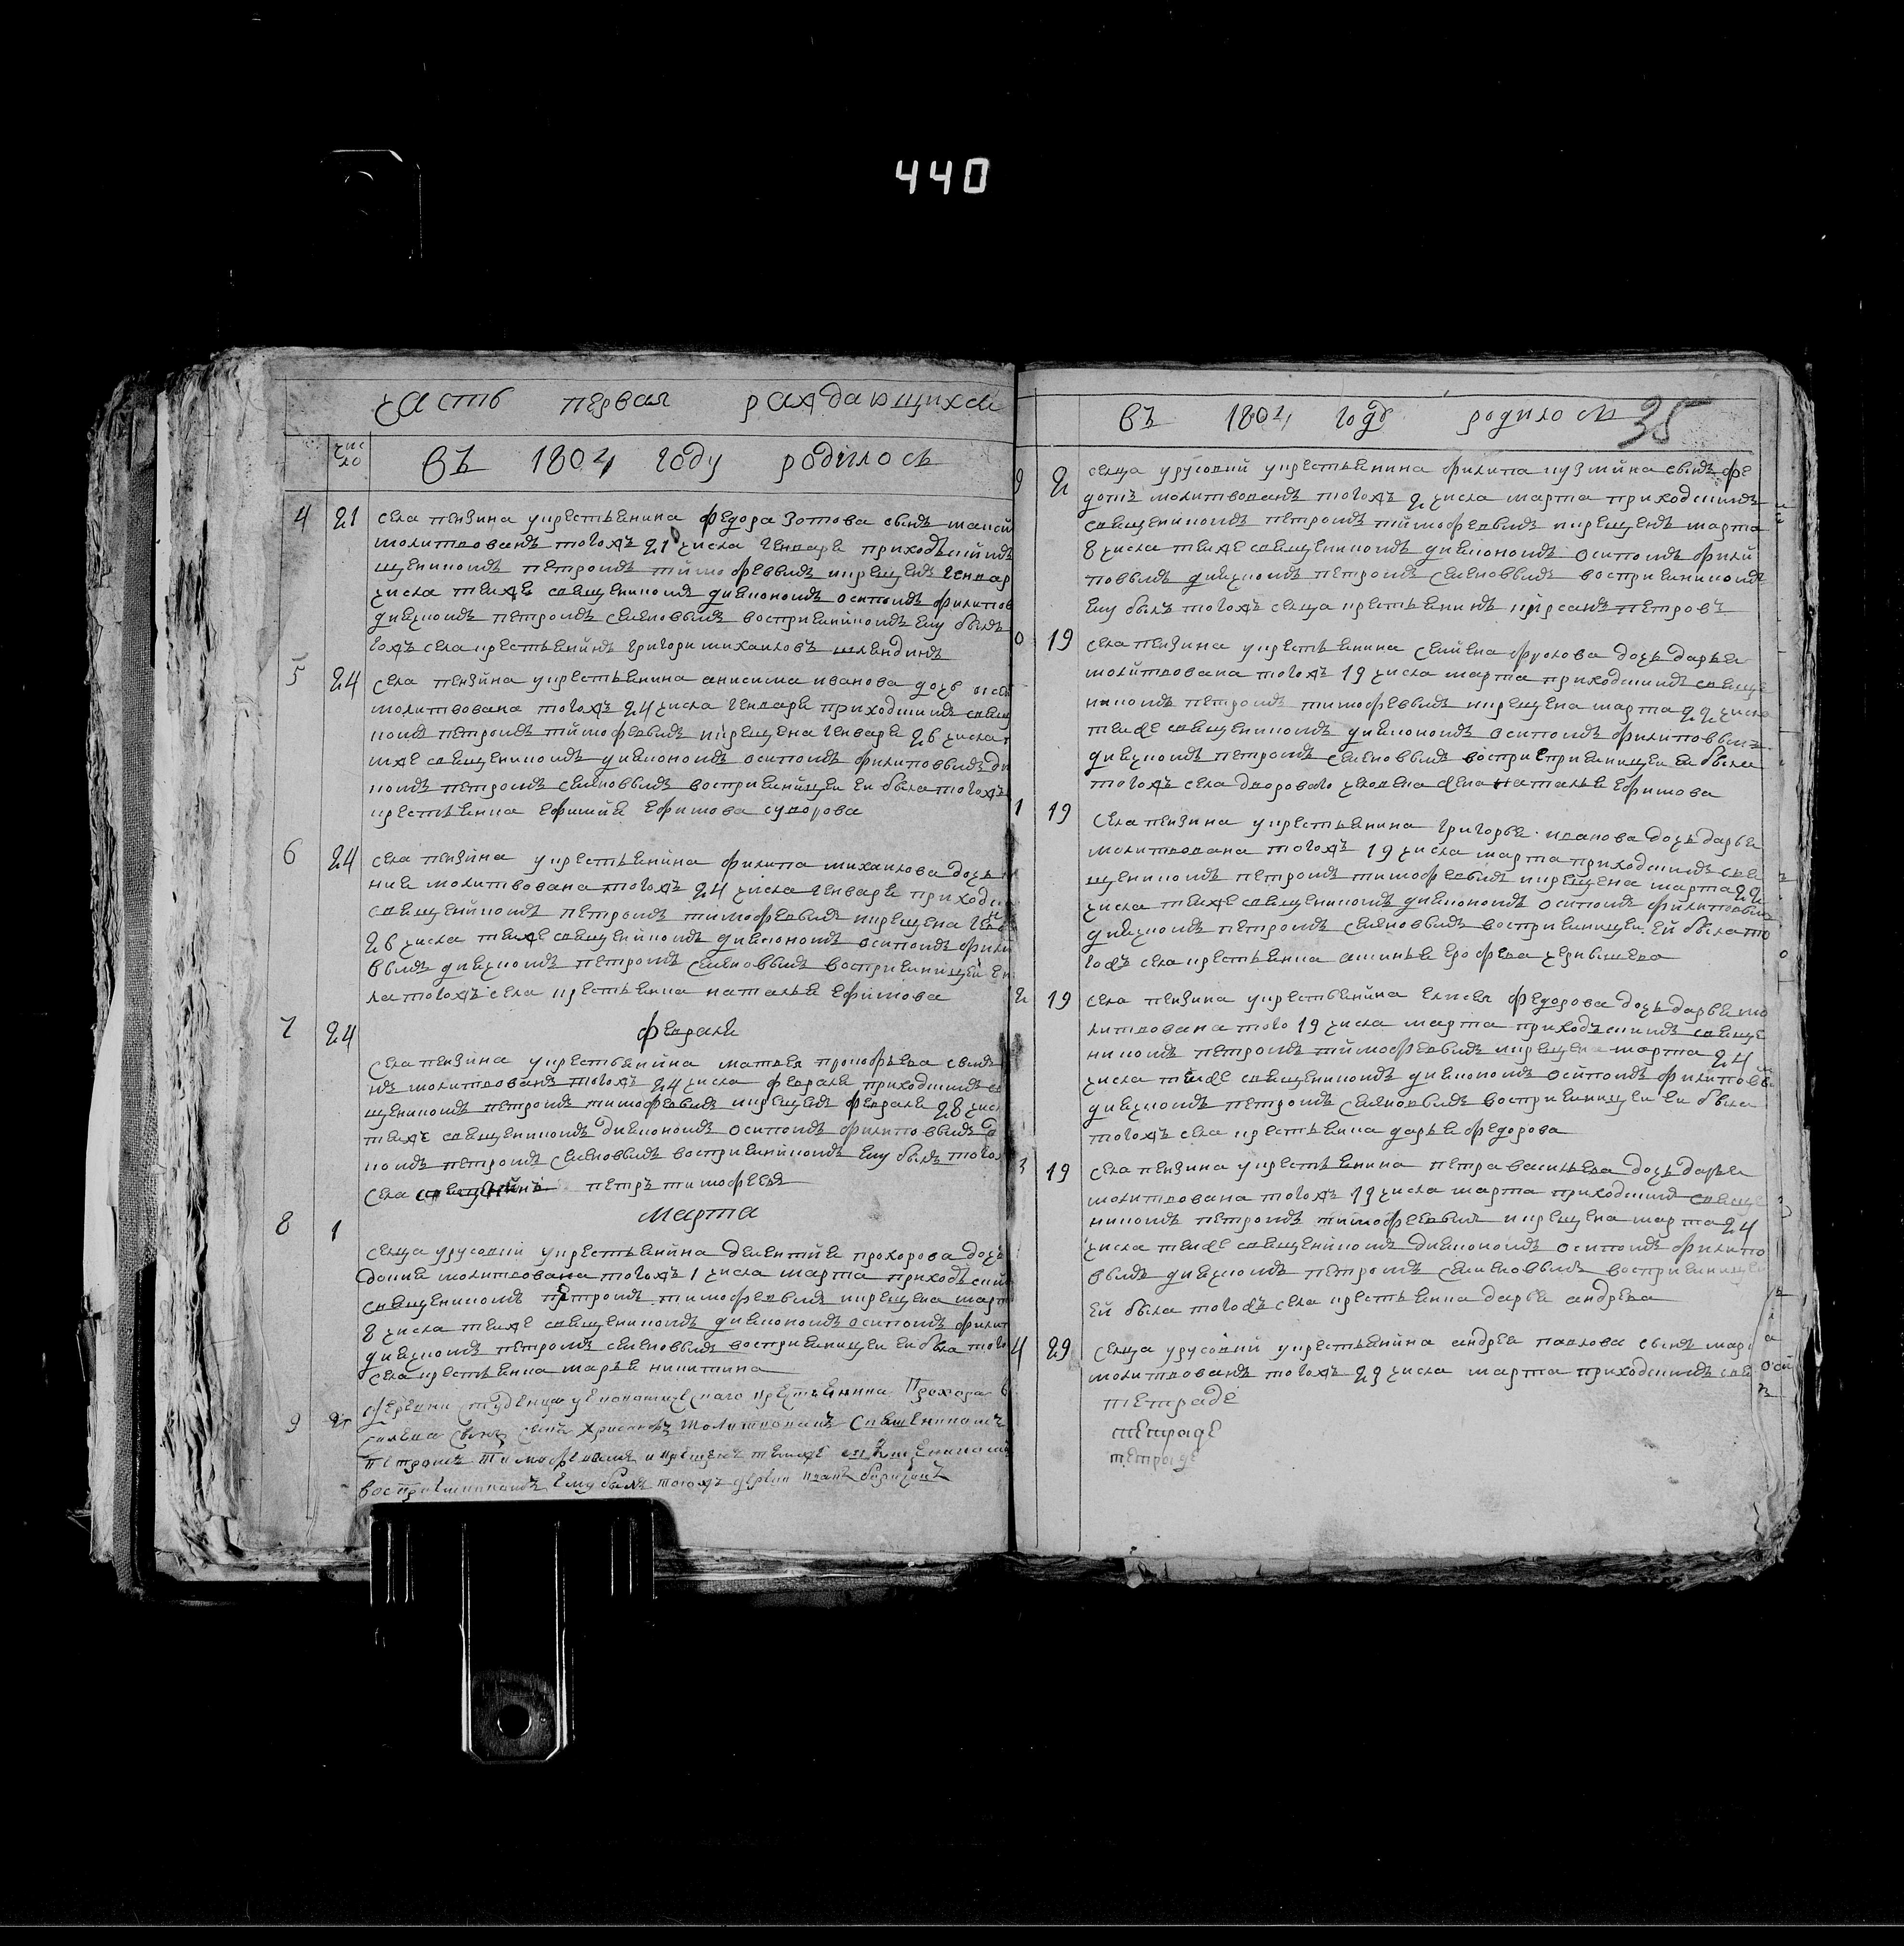 440
часть первая раждающихся
чис
ло
въ 1804 году родилось
4 21 села пензина укрестьянина федора зотова сынъ
молитвованъ тогожъ 21 числа генваря приходскимъ
щенникомъ петромъ тимофеевымъ икрещенъ генвар
числа темже священникомъ диякономъ осипомъ филипов
диячкомъ петромъ семеновымъ восприемникомъ ему былъ
гожъ села крестьянинъ григори михаиловъ
5 24 села пензина укрестьянина анисима иванова дочь
молитвована тогожъ 24 числа генваря приходскимъ свящ
комъ петромъ тимофеевымъ икрещена генваря 26 числа
мже священникомъ диякономъ осипомъ филиповымъ ди
комъ петромъ семеновымъ восприемницеи еи была тогожъ
крестьянка ефимия ефимова суворова
6 24 села пензина укрестьянина филипа михаилова дочь
ния молитвована тогожъ 24 числа генваря приходс
священникомъ петромъ тимофеевымъ икрещена ген
26 числа темже священникомъ диякономъ осипомъ фили
вымъ диячкомъ петромъ семеновымъ восприемницей еи
ла тогожъ села крестьянка наталья ефимова
7 24 февраля
села пензина укрестьянина матвея прокофьева сынъ
нъ молитвованъ тогожъ 24 числа февраля приходскимъ св
щенникомъ петромъ тимофеевымъ икрещенъ февраля 28 чис
темже священникомъ диякономъ осипомъ филиповымъ д
комъ петромъ семеновымъ восприемникомъ ему былъ того
села петръ тимофеев
марта
8 1 сельца урусовки укрестьянина дементия прохорова дочь
докия молитвована тогожъ 1 числа марта приходским
священникомъ петромъ тимофеевымъ икрещена март
8 числа темже священникомъ диякономъ осипомъ филип
диячкомъ петромъ семеновымъ восприемницеи еи была того
села крестьянка марья никитина
9 деревни студенца уекономического крестьянина Прохора
сынъ молитвованъ священникомъ
петромъ тимофеевымъ икрещенъ темже священникомъ
восприемникомъ ему былъ тогожъ деревни
въ 1804 годъ родилось 35
9 2 сельца урусовки укрестьянина филипа кузмина сынъ фе
дотъ молитвованъ тогожъ 2 числа марта приходскимъ
священникомъ петромъ тимофеевымъ икрещенъ марта
8 числа темже священникомъ диякономъ осипомъ фили
повымъ диячкомъ петромъ семеновымъ восприемникомъ
ему былъ тогожъ сельца крестьянинъ кирсанъ петровъ
0 19 села пензина укрестьянина семена фролова дочь дарья
молитвована тогожъ 19 числа марта приходскимъ свяще
нникомъ петромъ тимофеевымъ икрещена марта 22 числа
темже священникомъ диякономъ осипомъ филиповым
диячкомъ петромъ семеновымъ восприеприемницеи еи была
тогожъ села дворового человека жена наталья ефимова
1 19 села пензина укрестьянина григорья иванова дочь дарья
молитвована тогожъ 19 числа марта приходскимъ свя
щенникомъ петромъ тимофеевымъ икрещена марта 22
числа темже священникомъ диякономъ осипомъ филиповым
диячкомъ петромъ семеновымъ восприемницеи ей была то
гожъ села крестьянка аминья ерофева чернышева
2 19 села пензина укрестьянина елисея федорова дочь дарья мо
литвована того 19 числа марта приходскимъ свяще
нникомъ петромъ тимофеевымъ икрещена марта 24
числа темже священникомъ диякономъ осипомъ филипов
диячкомъ петромъ семеновымъ восприемницеи еи была
тогожъ села крестьянка дарья федорова
3 19 села пензина укрестьянина петра васильева дочь дарья
молитвована тогожъ 19 числа марта приходским свяще
нникомъ петромъ тимофеевым икрещена марта 24
числа темже священникомъ диякономъ осипомъ филипо
вымъ диячкомъ петромъ семеновымъ восприемницеи
ей была тогожъ села крестьянка дарья андрева
4 29 сельца урусовки укрестьянина андрея павлова сынъ мар
молитвованъ тогожъ 29 числа марта приходскимъ свя
тетраде
тетраде
тетраде